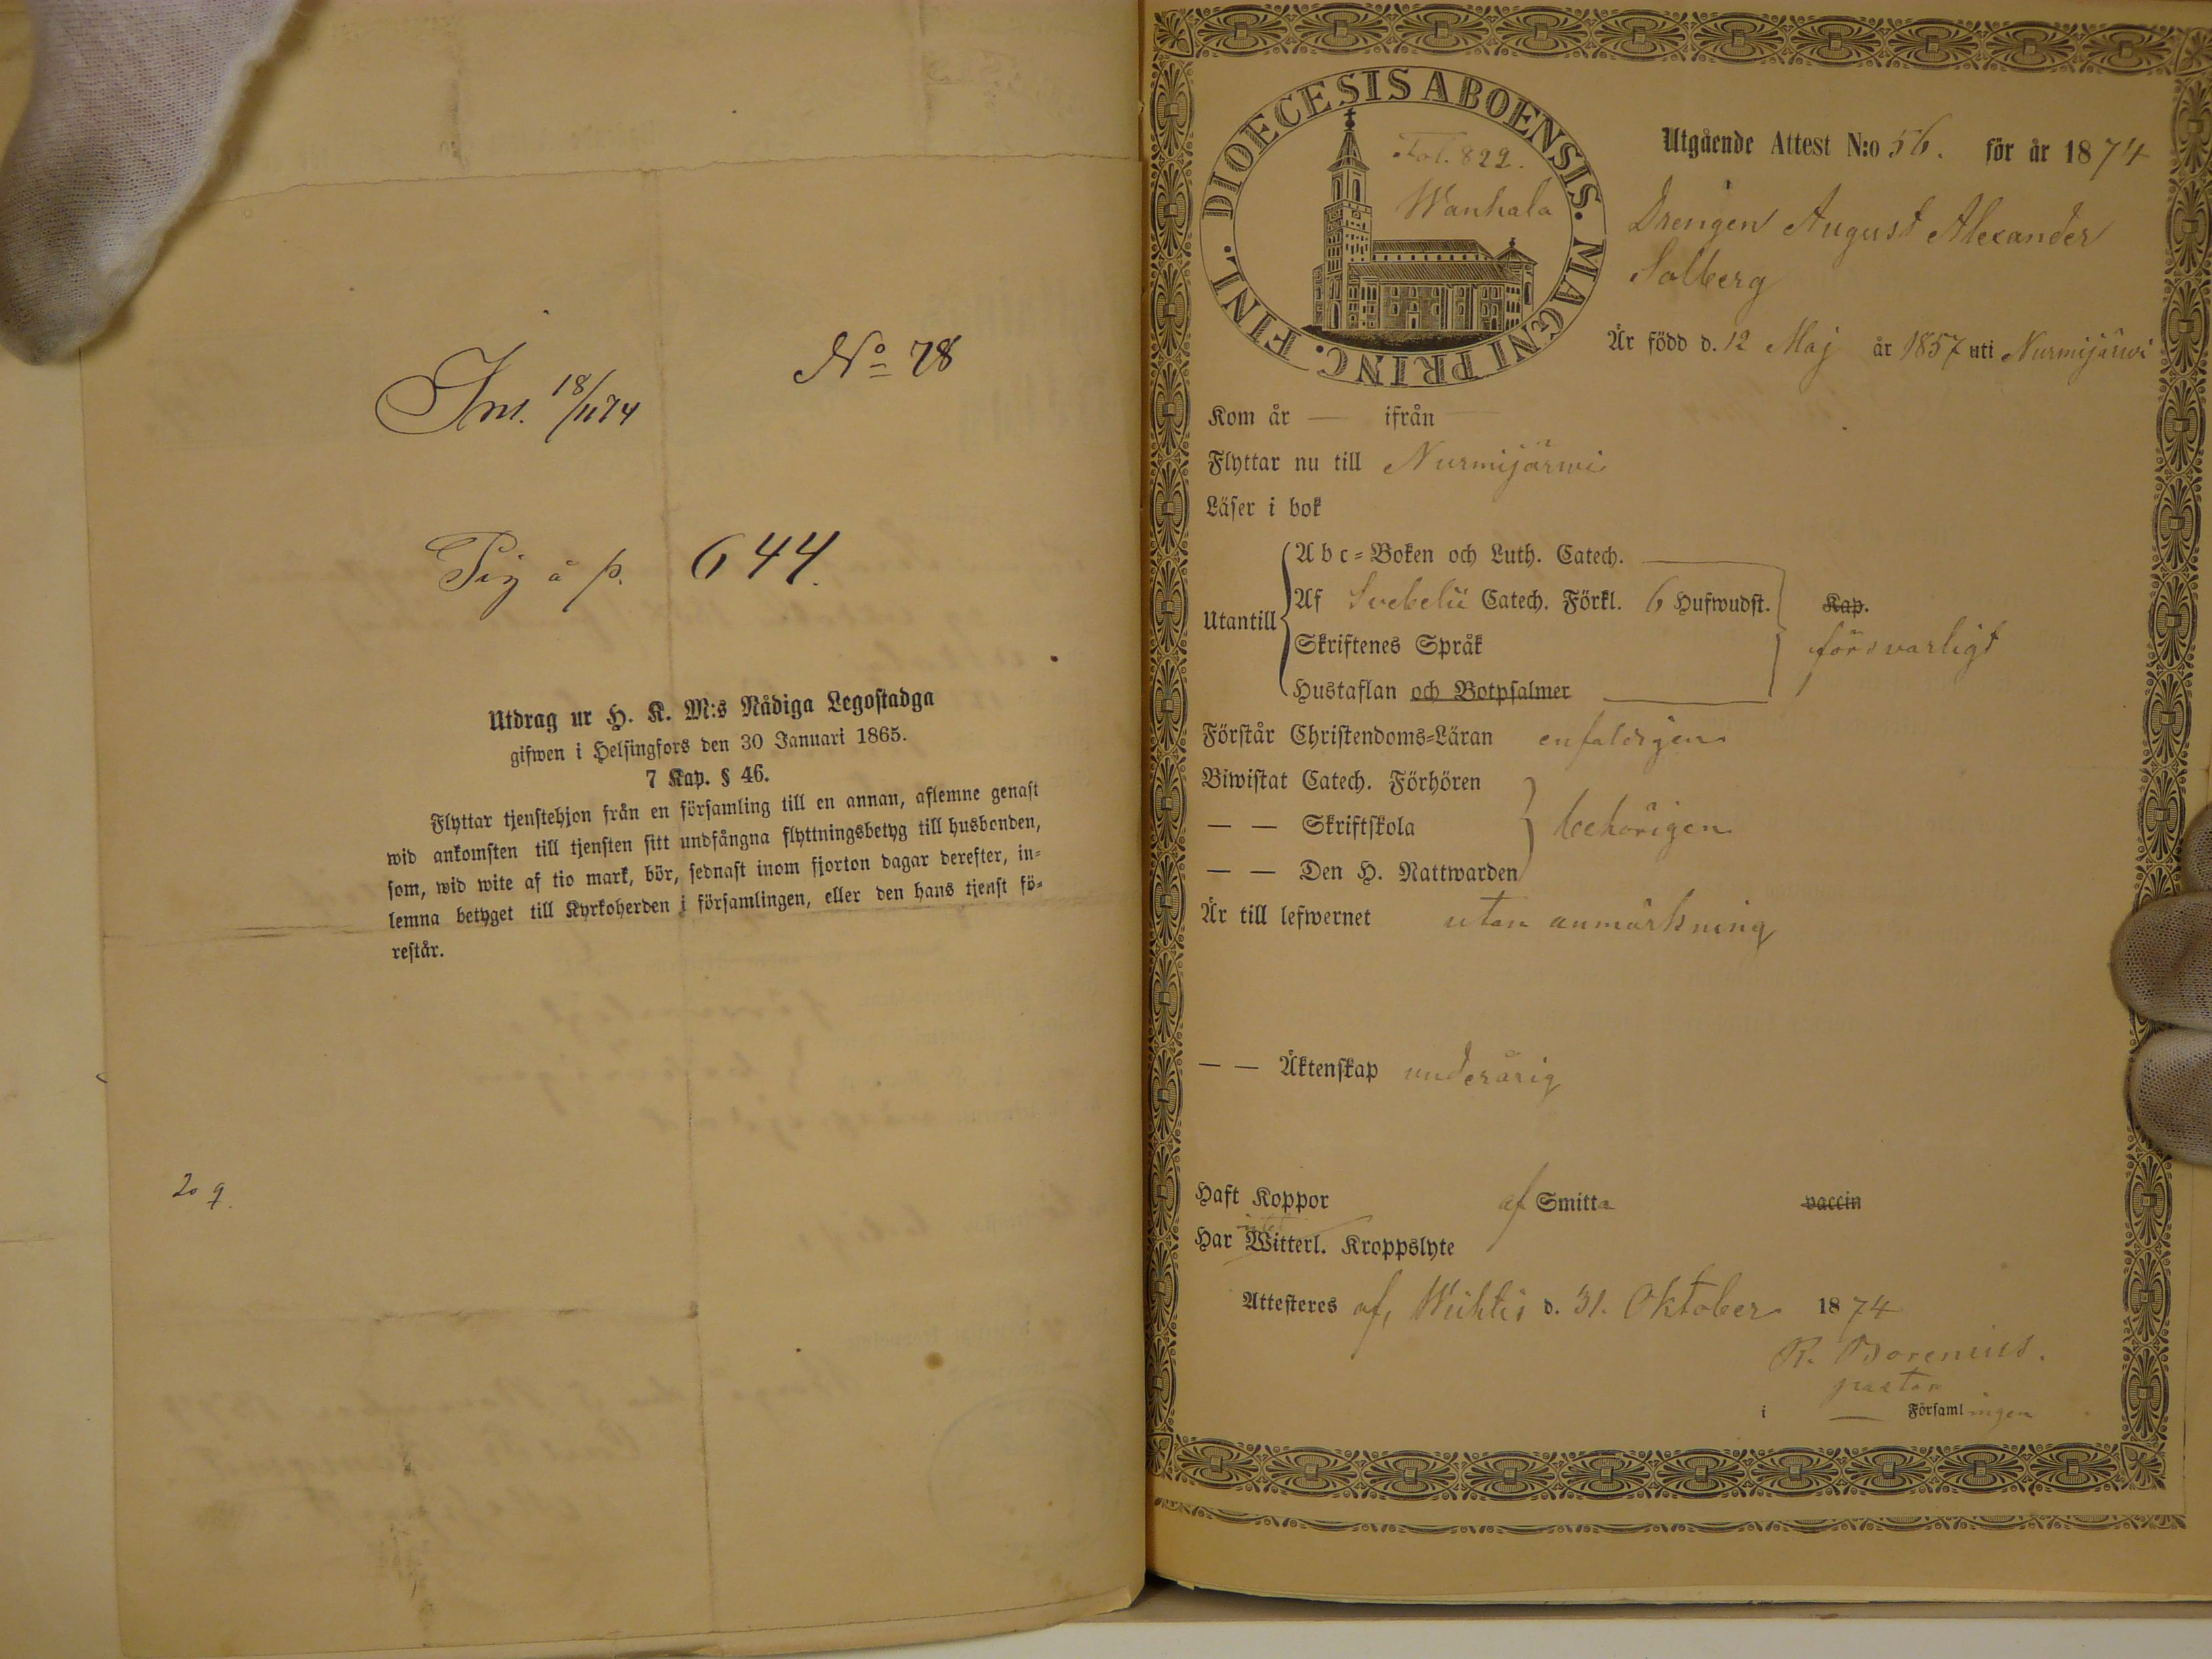 No 78
Inl. 18/11 74
Pig å p. 644.
Utdrag ur H. K. M:s Nådiga Legostadga
gifwen i Helsingfors den 30 Januari 1865.
7 Kap. § 46.
Flyttar tjenstehjon från en församling till en annan, aflemne genast
wid ankomsten till tjensten sitt undfångna flyttningsbetyg till husbonden,
som, wid wite af tio mark, bör, sednast inom fjorton dagar derefter, in-
lemna betyget till Kyrkoherden i församlingen, eller den hans tjenst fö-
restår.
DIOECESIS ABOENSIS. MAGNI PRINC. FINL.
Fol. 822.
Wanhala
Utgående Attest N:o 56. för år 1874
Drengen August Alexander
Salberg
Är född d. 12 Maj år 1857 uti Nurmijärwi
Kom år — ifrån —
Flyttar nu till Nurmijärwi
Läser i bok
Utantill
Abc-Boken och Luth. Catech.
Af Svebelii Catech. Förkl. 6 Hufwudst. Kap.
Skriftenes Språk försvarligt
Hustaflan och Botpsalmer
Förstår Christendoms-Läran enfaldigen
Biwistat Catech. Förhören
— — Skriftskola behörigen
— — Den H. Nattwarden
Är till lefwernet utan anmärkning
— — Äktenskap underårig
Haft Koppor af Smitta vaccin
intet
Har Witterl. Kroppslyte
Attesteres af, Wichtis d. 31. Oktober 1874
R. Borenius.
pastor
i — Församlingen